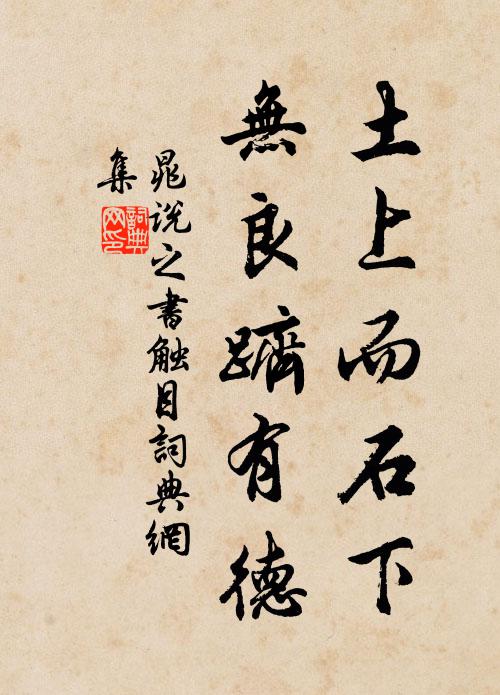 土上而石下
無良躋有德
晁说之書触目詞典網
集
詞典
网印